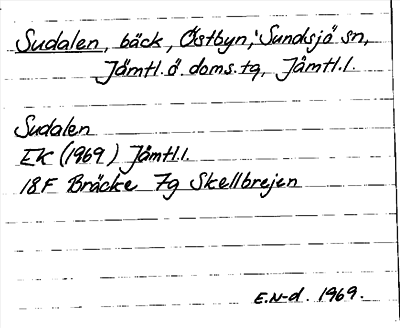 Sudalen, bäck, Östbyn, Sundsjö sn,
Jämtl.ö. doms.tg, Jämtl.l.
Sudalen
EK (1969) Jämtl.l.
18F Bräcke 7g Skellbrejen
E.N-d. 1969.